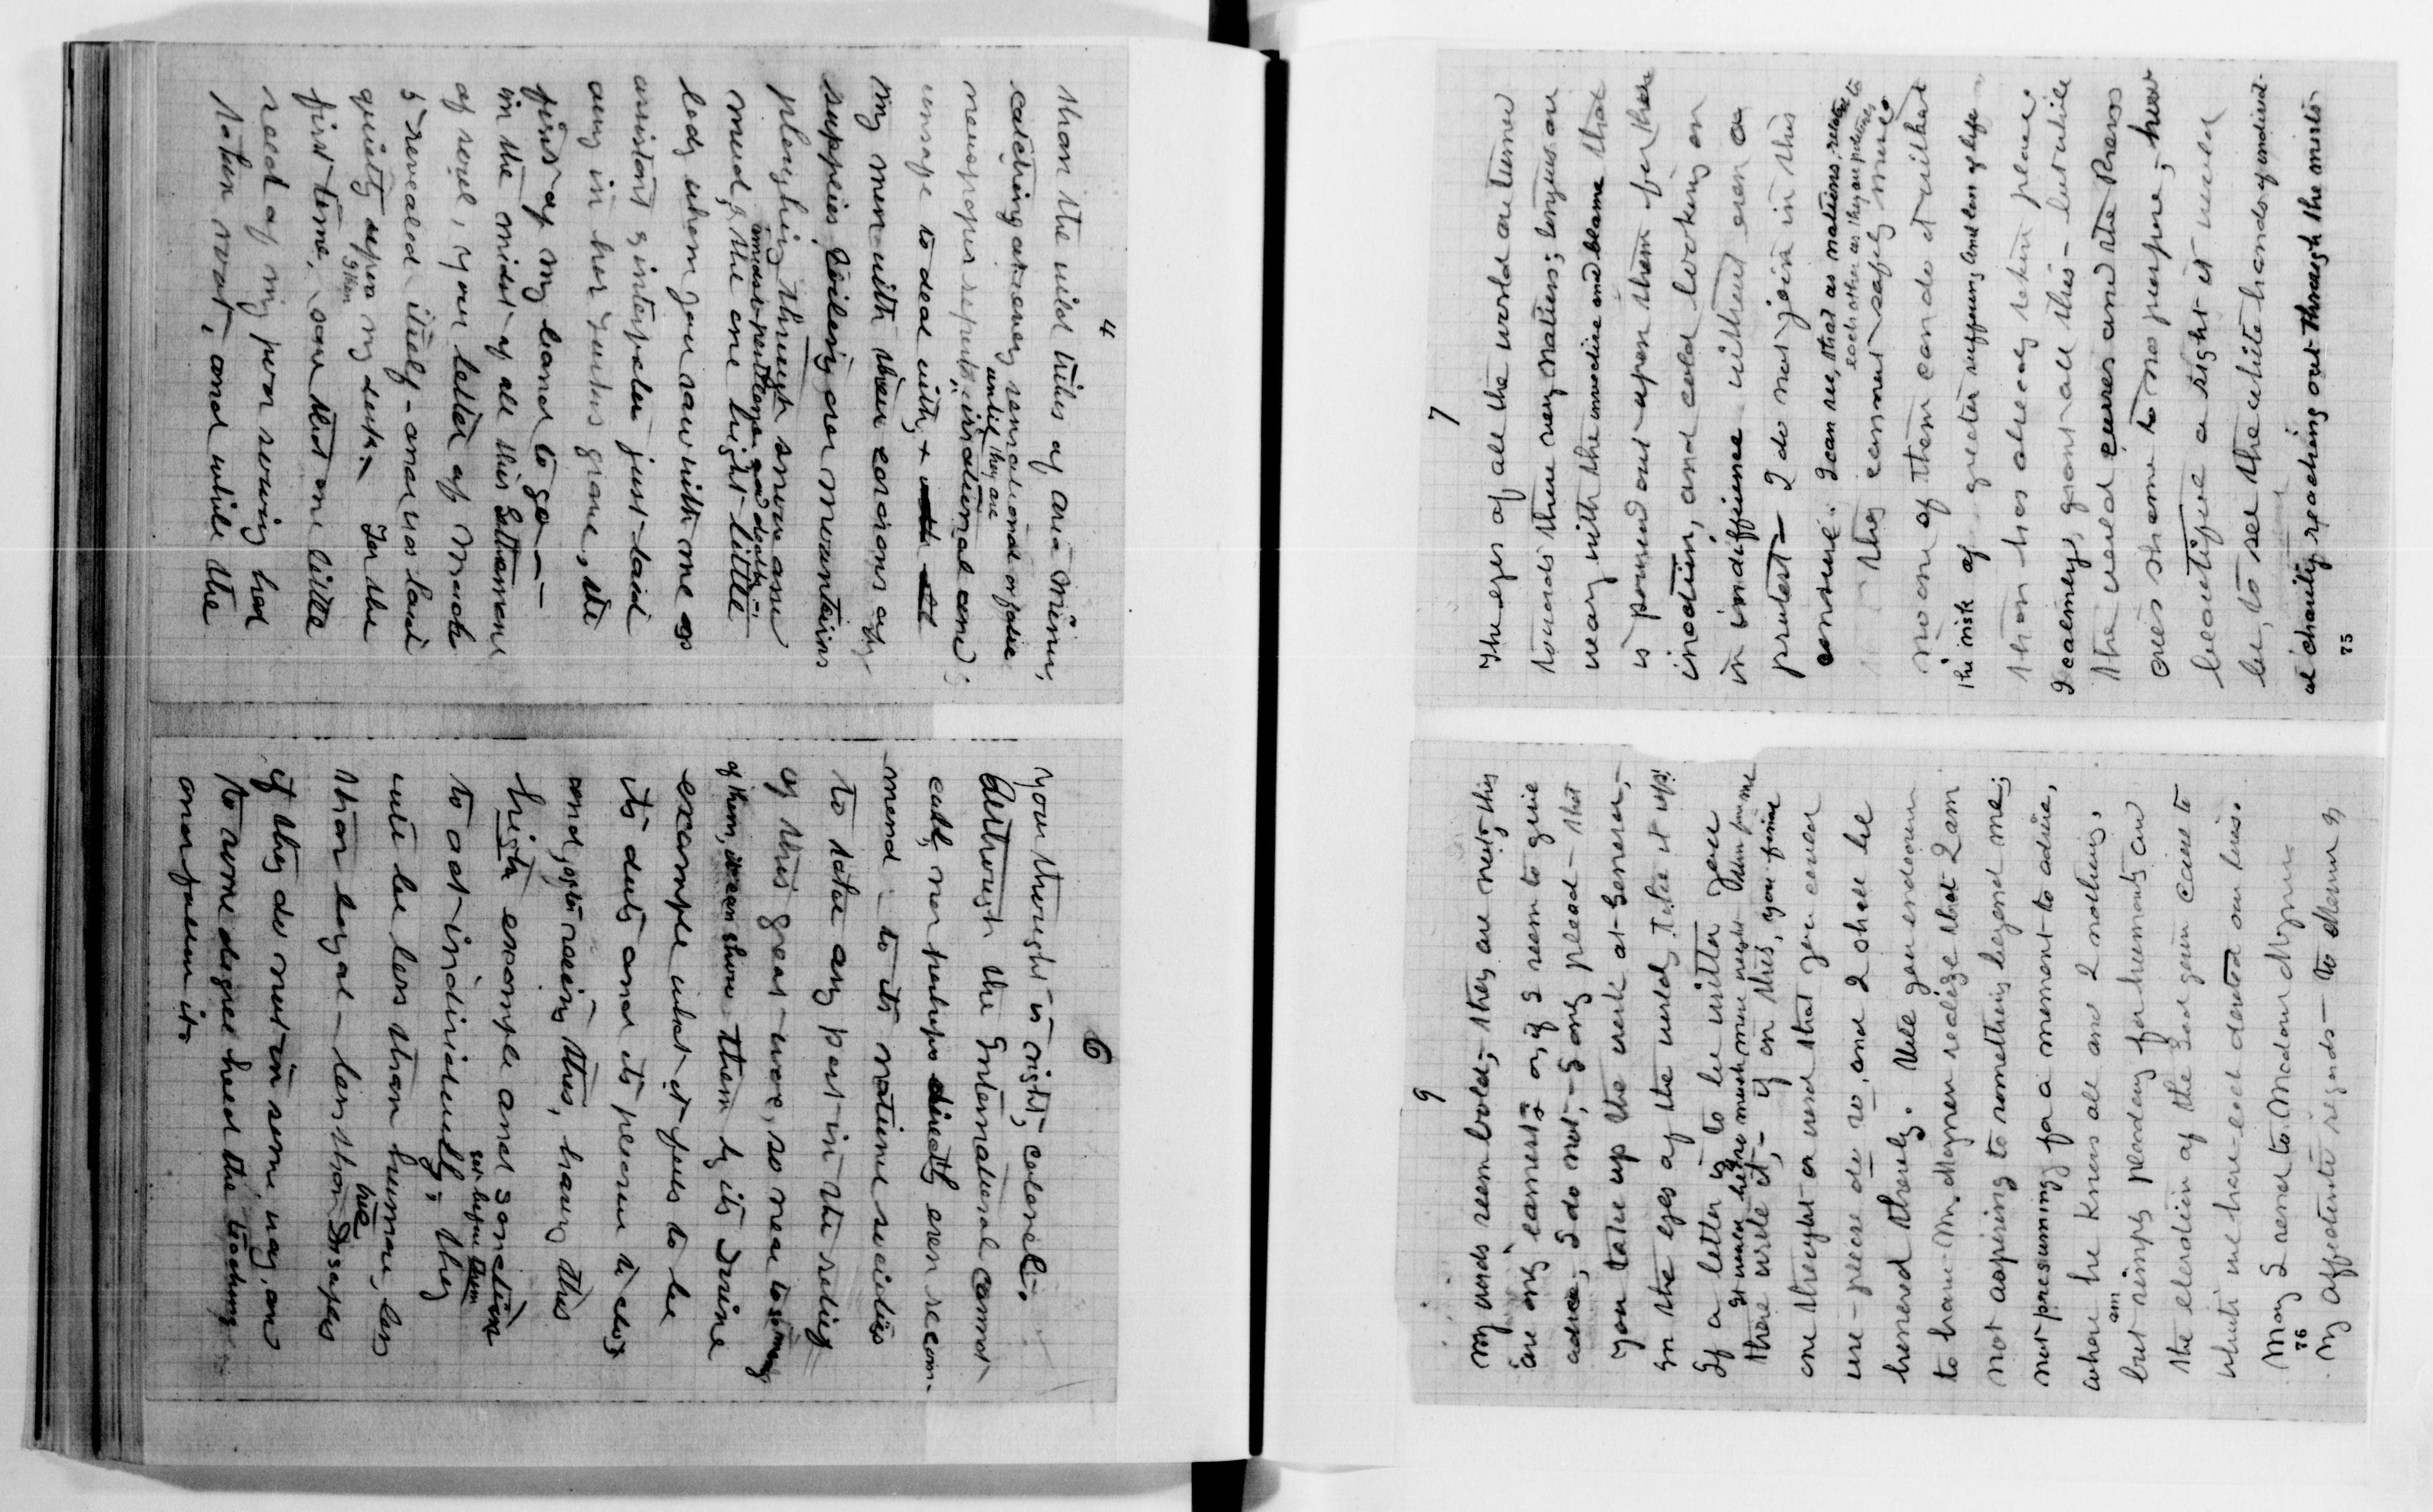 4
than the wild tribes of Asia Minor,
catching at every sensational or false
newspaper report, until they are irrational and
unsafe to deal with, +
my men with their caravans of
supplies, toiling over mountains
ploughing through snow and
mud, amidst pestilence and death; the one bright little
lady whom you saw with me as
assistant & interpreter just laid
away in her youths grave, the
first of my band to go —
in the midst of all this Sufferance
of soul, your letter of March
5 revealed itself - and was laid
quietly upon my desk. For the
first time, I then saw that one little
seed of my poor sowing had
taken root, and while the
6
Your thought is right, colonel.
Although the International cannot
call, nor perhaps directly even recom-
mend - to its national societies
to take any part in the relief
of this great woe, so near to so many
of them, it can show them by its Divine
example what it feels to be
its duty and its pleasure to do;
and, after seeing this, having this
high example and sanction
to act individually, set before them they
will be less than human, less
than loyal - less than true Disciples
if they do not in some way, and
to some degree heed the teaching
and follow it.
7
The eyes of all the world are turned
towards these very nations; tongues are
weary with the invective and blame that
is poured out upon them for their
inaction, and cold looking on
in indifference without even a
protest - I do not join in this
censure. I can see, that as nations, related to
each other as they are potentates
they cannot safely move.
no one of them can do it without
the risk of greater suffering and loss of life
than has already taken place.
I calmly, grant all this - but while
the world curses and the Press
cries shame to no purpose; how
beautiful a sight it would
be, to see the white hands of individ-
ual charity reaching out through the mists
75
9
My words seem bold; they are not, they
are only earnest; or, if I seem to give
advice, I do not, - I only plead - that
you take up the work at Geneva, -
In the eyes of the world, take it up!
If a letter is to be written you
there write it, - It under her so much more weight than from me if on this, you find
one thought or word that you could
use - please do so, and I shall be
honored thereby. Will you endeavor
to have Mr. Moynier realize that I am
not aspiring to something beyond me;
not presuming, for a moment to advise,
where he knows all and I nothing.
but am simply pleading for humanity and
the elevation of the God given cause to
which we have each devoted our lives.
May I send to Madam Moynier
76
My affectionate regards - to Mamma &